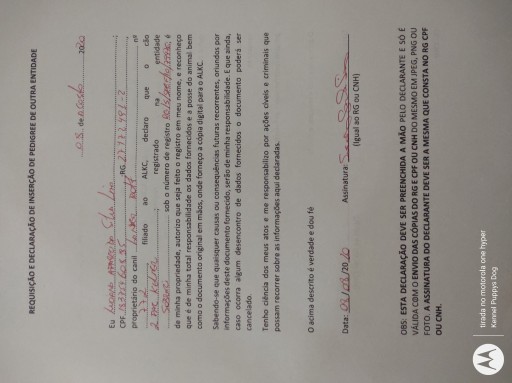 REQUISIÇÃO E DECLARAÇÃO DE INSERÇÃO DE PEDIGREE DE OUTRA ENTIDADE
de 2020
Eu
CPF RG
proprietário do canil nº
filiado ao ALKC, declaro que o cão
registrado na entidade
sob o número de registro é
de minha propriedade, autorizo que seja feito o registro em meu nome, e reconheço
que é de minha total responsabilidade os dados fornecidos e a posse do animal bem
como o documento original em mãos, onde forneço a cópia digital para o ALKC.
Sabendo-se que quaisquer causas ou consequências futuras recorrentes, oriundos por
informações deste documento fornecido, serão de minha responsabilidade. E que ainda,
caso ocorra algum desencontro de dados fornecidos o documento poderá ser
cancelado.
Tenho ciência dos meus atos e me responsabilizo por ações cíveis e criminais que
possam recorrer sobre as informações aqui declaradas.
O acima descrito é verdade e dou fé
Data: /2020 Assinatura:
(Igual ao RG ou CNH)
OBS: ESTA DECLARAÇÃO DEVE SER PREENCHIDA A MÃO PELO DECLARANTE E SÓ É
VÁLIDA COM O ENVIO DAS CÓPIAS DO RG E CPF OU CNH DO MESMO EM JPEG, PNG OU
FOTO. A ASSINATURA DO DECLARANTE DEVE SER A MESMA QUE CONSTA NO RG CPF
OU CNH.
tirada no motorola one hyper
Kennel Puppys Dog